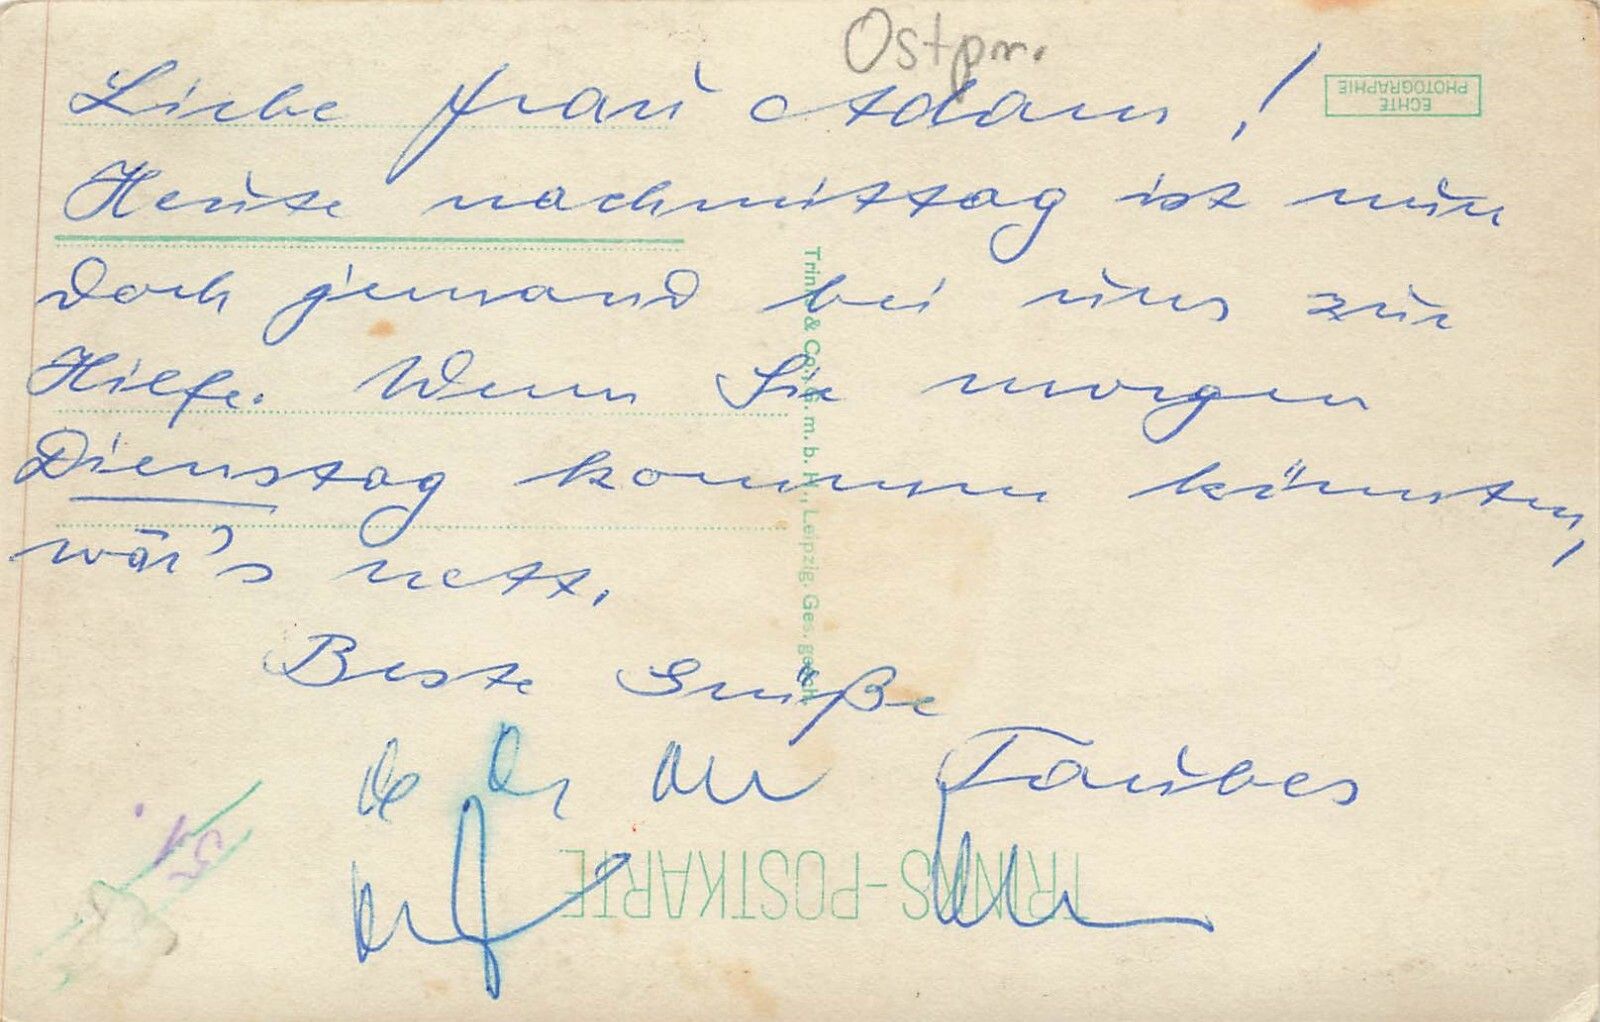 Ostpr.
Liebe Frau Adam!
ECHTE
PHOTOGRAPHIE
Heute nachmittag ist nun
doch jemand bei uns zur
Hilfe. Wenn Sie morgen
Dienstag kommen könnten,
wär's nett.
Beste Grüße
Taubes
Trinks & Co., G.m.b.H., Leipzig. Ges. gesch.
TRINKS-POSTKARTE